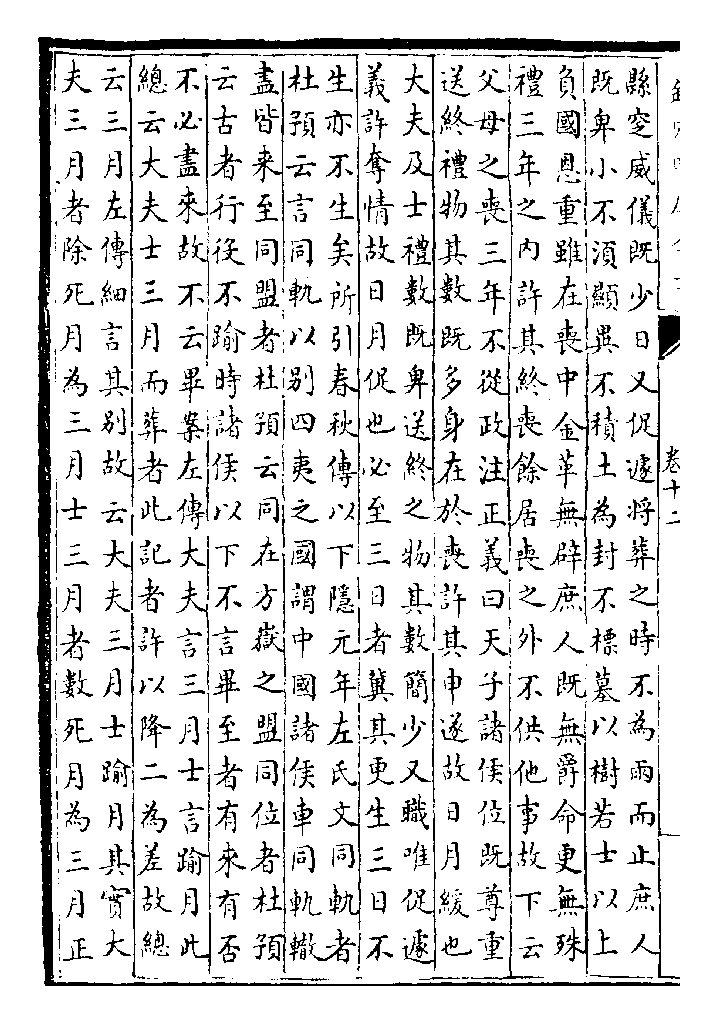 卷十二
縣窆威儀既少日又促遽將葬之時不為雨而止庶人
既卑小不須顯異不積土為封不標墓以樹若士以上
負國恩重雖在喪中金革無辟庶人既無爵命更無殊
禮三年之內許其終喪餘居喪之外不供他事故下云
父母之喪三年不從政注正義曰天子諸侯位既尊重
送終禮物其數既多身在於喪許其申遂故日月緩也
大夫及士禮數既卑送終之物其數簡少又職唯促遽
義許奪情故日月促也必至三日者冀其更生三日不
生亦不生矣所引春秋傳以下隱元年左氏文同軌者
杜預云言同軌以別四夷之國謂中國諸侯車同軌轍
盡皆來至同盟者杜預云同在方嶽之盟同位者杜預
云古者行役不踰時諸侯以下不言畢至者有來有否
不必盡來故不云畢案左傳大夫言三月士言踰月此
總云大夫士三月而葬者此記者許以降二為差故總
云三月左傳細言其別故云大夫三月士踰月其實大
夫三月者除死月為三月士三月者數死月為三月正